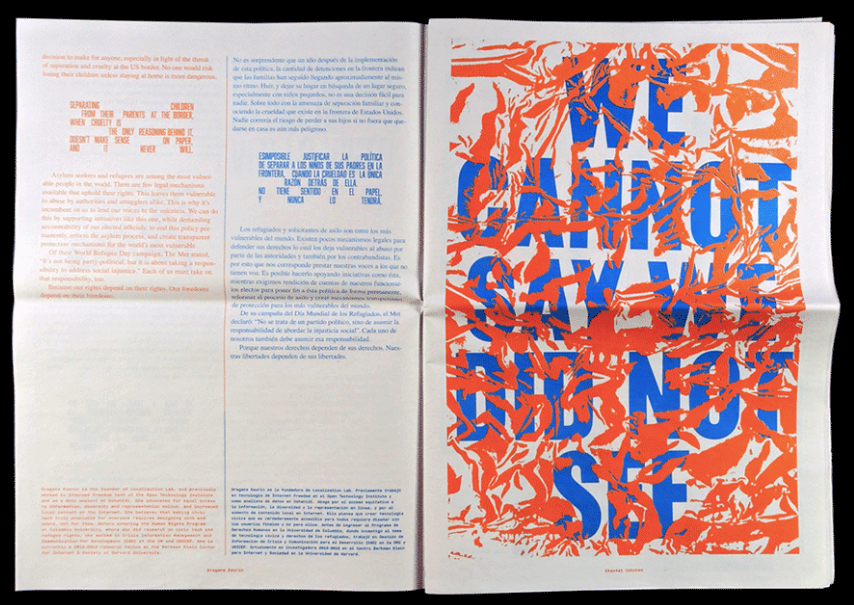 decision to make for anyone, especially in light of the threat
of separation and cruelty at the US border. No one would risk
losing their children unless staying at home is more dangerous.
SEPARATING CHILDREN
FROM THEIR PARENTS AT THE BORDER,
WHEN CRUELTY IS
THE ONLY REASONING BEHIND IT,
DOESN'T MAKE SENSE ON PAPER,
AND IT NEVER WILL.
Asylum seekers and refugees are among the most vulner-
able people in the world. There are few legal mechanisms
available that uphold their rights. This leaves them vulnerable
to abuse by authorities and smugglers alike. This is why it's
incumbent on us to lend our voices to the voiceless. We can do
this by supporting initiatives like this one, while demanding
accountability of our elected officials: to end this policy per-
manently, reform the asylum process, and create transparent
protection mechanisms for the world's most vulnerable.
Of their World Refugee Day campaign, The Met stated,
"it's not being party political, but it is about taking a respon-
sibility to address social injustice." Each of us must take on
that responsibility, too.
Because our rights depend on their rights. Our freedoms
depend on their freedoms.
No es sorprendente que un año después de la implementación
de esta política, la cantidad de detenciones en la frontera indican
que las familias han seguido llegando aproximadamente al mis-
mo ritmo. Huir, y dejar su hogar en búsqueda de un lugar seguro,
especialmente con niños pequeños, no es una decisión fácil para
nadie. Sobre todo con la amenaza de separación familiar y con-
ociendo la crueldad que existe en la frontera de Estados Unidos.
Nadie correría el riesgo de perder a sus hijos si no fuera que que-
darse en casa es aún más peligroso.
ESIMPOSIBLE JUSTIFICAR LA POLÍTICA
DE SEPARAR A LOS NIÑOS DE SUS PADRES EN LA
FRONTERA, CUANDO LA CRUELDAD ES LA ÚNICA
RAZÓN DETRÁS DE ELLA.
NO TIENE SENTIDO EN EL PAPEL,
Y NUNCA LO TENDRÁ.
Los refugiados y solicitantes de asilo son entre los más
vulnerables del mundo. Existen pocos mecanismos legales para
defender sus derechos lo cual los deja vulnerables al abuso por
parte de las autoridades y también por los contrabandistas. Es
por esto que nos corresponde prestar nuestras voces a los que no
tienen voz. Es posible hacerlo apoyando iniciativas como ésta,
mientras exigimos rendición de cuentas de nuestros funcionar-
ios electos para poner fin a ésta política de forma permanente,
reformar el proceso de asilo y crear mecanismos transparentes
de protección para los más vulnerables del mundo.
De su campaña del Día Mundial de los Refugiados, el Met
declaró: "No se trata de un partido político, sino de asumir la
responsabilidad de abordar la injusticia social". Cada uno de
nosotros también debe asumir esa responsabilidad.
Porque nuestros derechos dependen de sus derechos. Nues-
tras libertades dependen de sus libertades.
Dragana Kaurin is the founder of Localization Lab, and previously
worked in Internet Freedom tech at the Open Technology Institute
and as a data analyst at
Dragana Kaurin es la fundadora de Localization Lab. Previamente trabajó
en tecnología de Internet Freedom en el Open Technology Institute y
como analista de datos en
Dragana Kaurin
WE
CANNOT
SAY WE
DID NOT
SEE